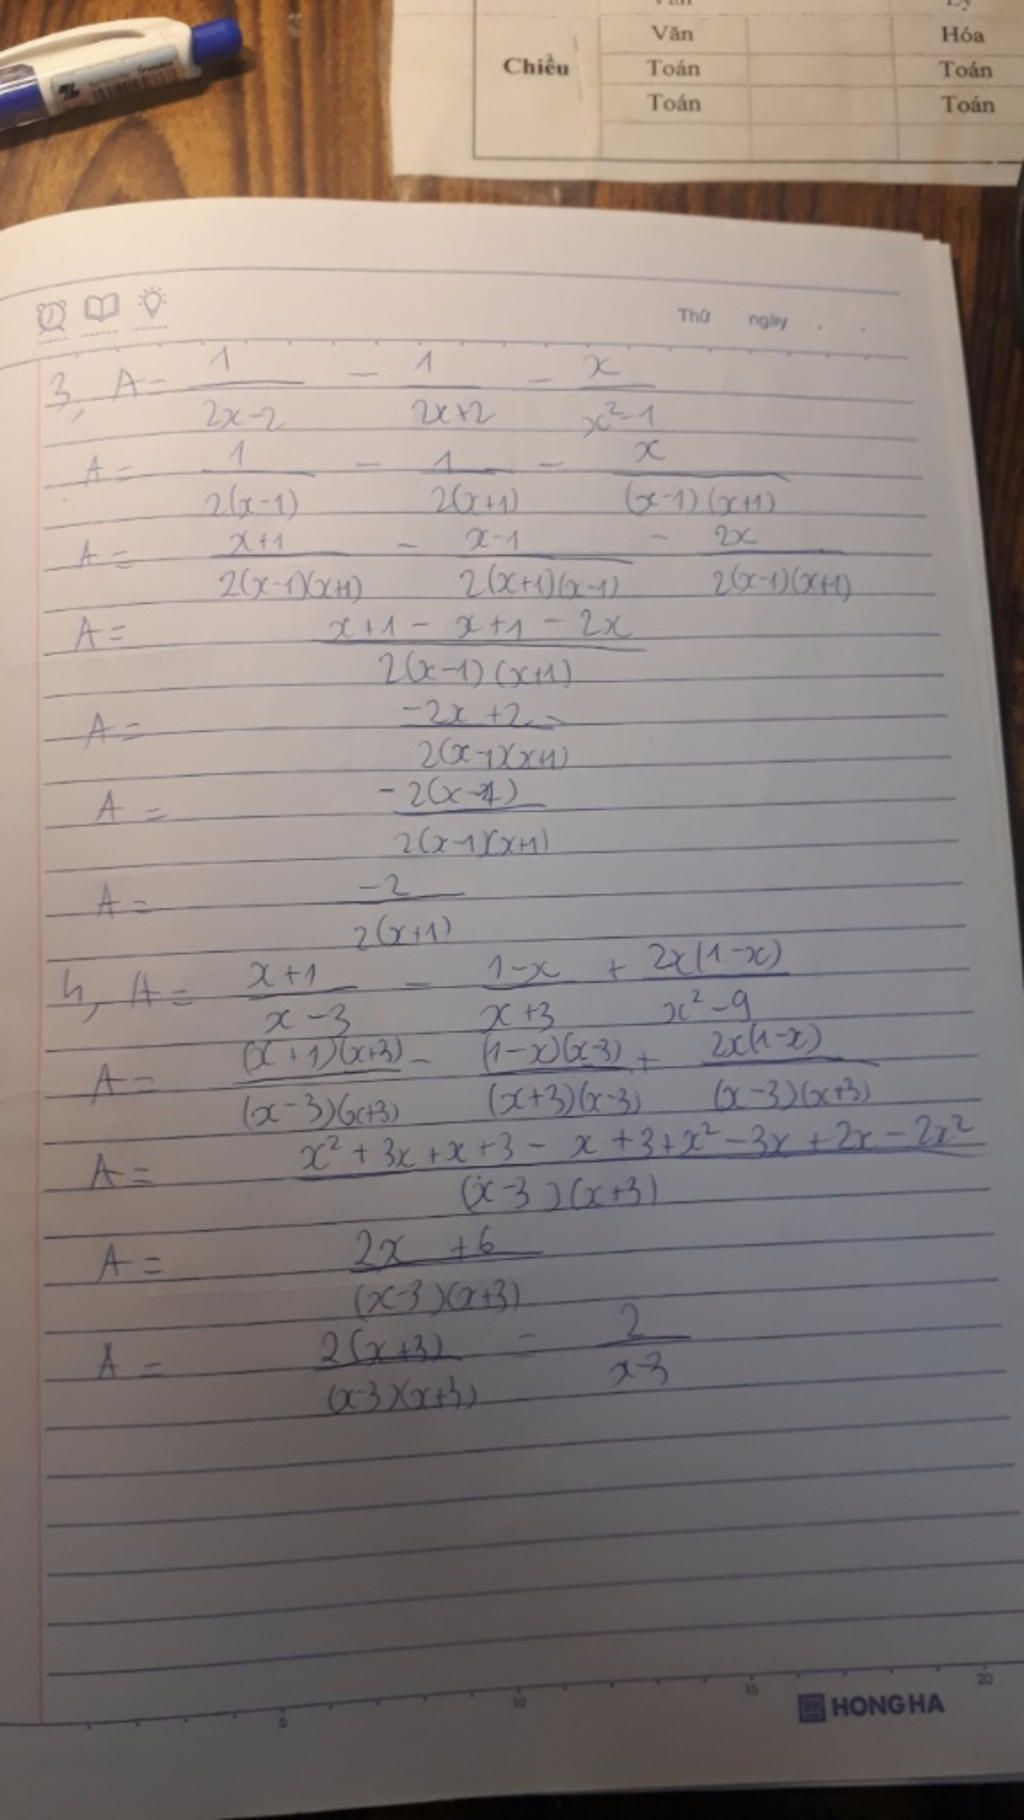 Văn Hóa
Chiều Toán Toán
Toán Toán
Thứ ngày . .
3, A = 1/(2x-2) - 1/(2x+2) - x/(x²-1)
A = 1/(2(x-1)) - 1/(2(x+1)) - x/((x-1)(x+1))
A = (x+1)/(2(x-1)(x+1)) - (x-1)/(2(x+1)(x-1)) - 2x/(2(x-1)(x+1))
A = (x+1-x+1-2x)/(2(x-1)(x+1))
A = (-2x+2)/(2(x-1)(x+1))
A = -2(x-1)/(2(x-1)(x+1))
A = -2/(2(x+1))
4, A = (x+1)/(x-3) - (1-x)/(x+3) + 2x(1-x)/(x²-9)
A = (x+1)(x+3)/((x-3)(x+3)) - (1-x)(x-3)/((x+3)(x-3)) + 2x(1-x)/((x-3)(x+3))
A = (x²+3x+x+3-x+3+x²-3x+2x-2x²)/((x-3)(x+3))
A = (2x+6)/((x-3)(x+3))
A = 2(x+3)/((x-3)(x+3)) = 2/(x-3)
5 10 15 20
HONG HA